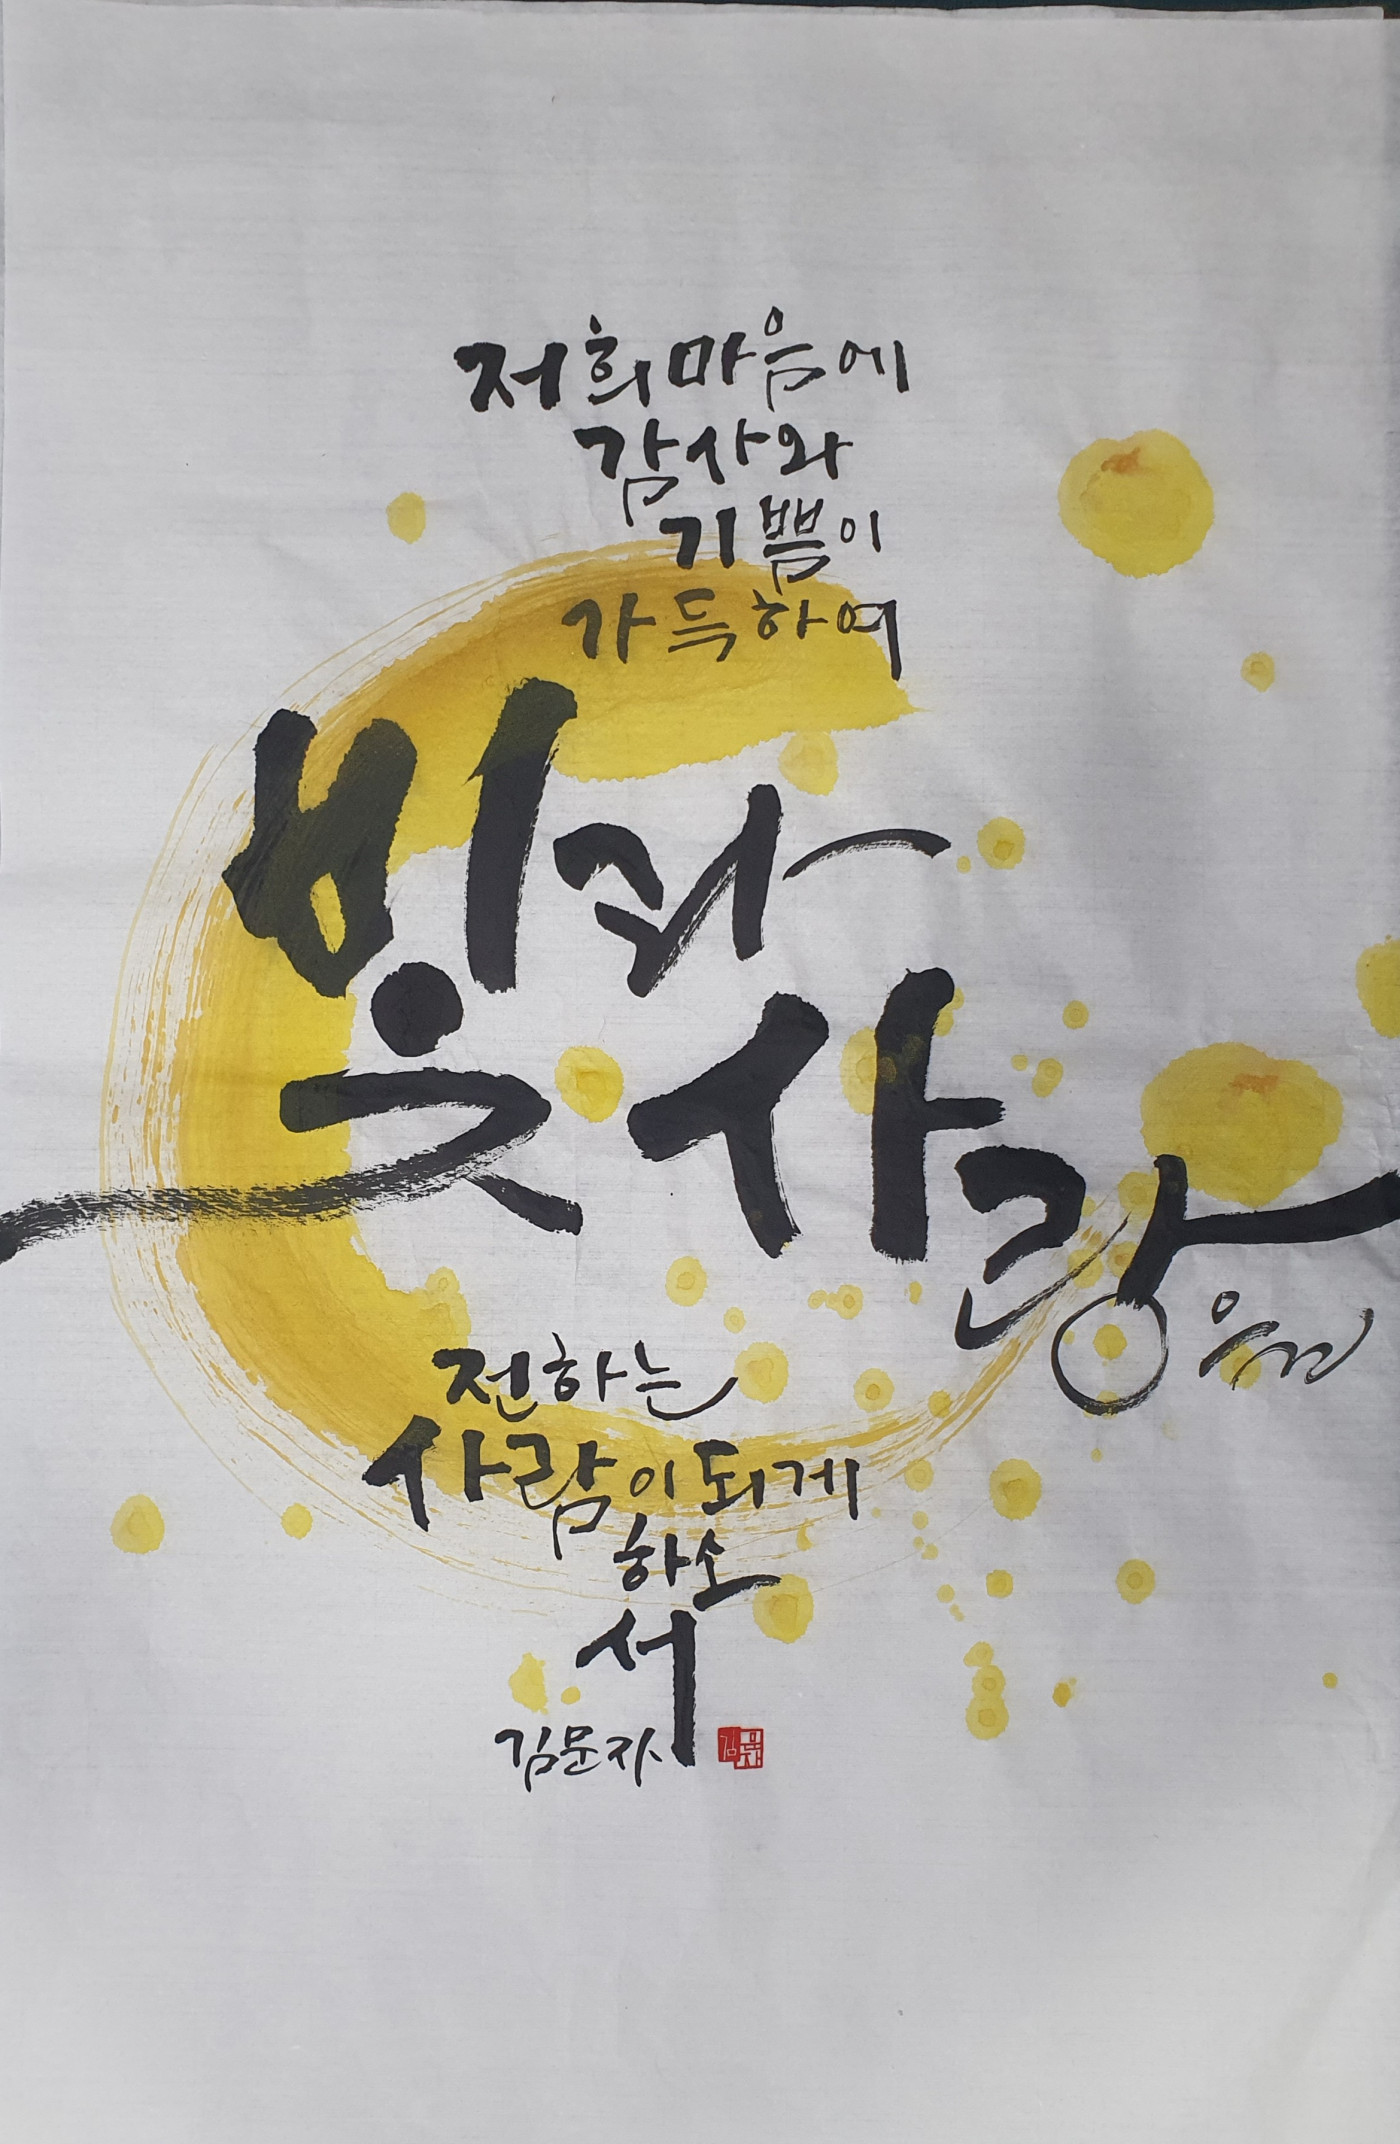 저희 마음에
감사와
기쁨이
가득하여
빛과
사랑을
전하는
사람이 되게
하소
서
김문자
김문자